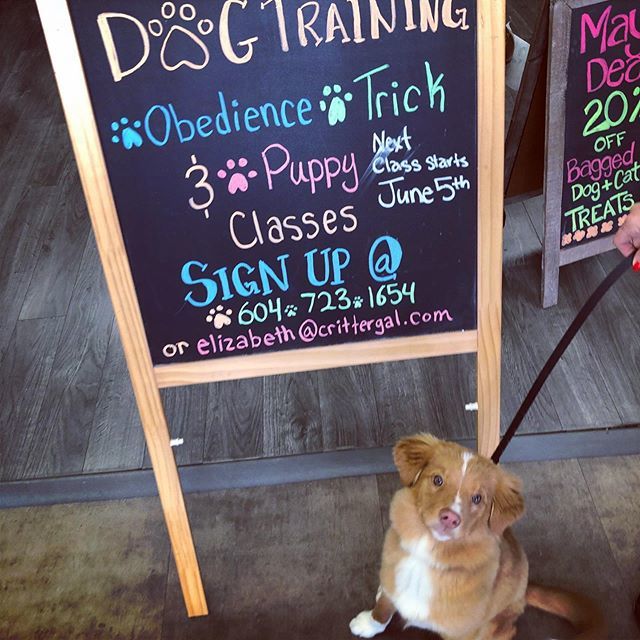 DOG TRAINING
Obedience Trick
& Puppy
Classes
Next
Class starts
June 5th
SIGN UP @
604 723 1654
or elizabeth@crittergal.com
May
20%
OFF
Bagged
Dog + Cat
TREATS